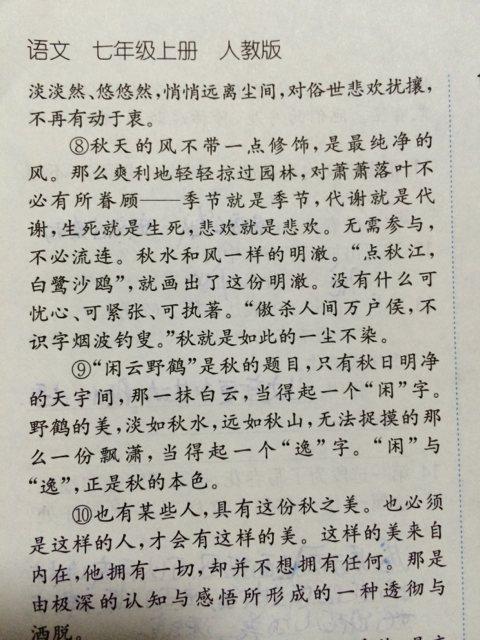 语文 七年级上册 人教版
淡淡然、悠悠然,悄悄远离尘间,对俗世悲欢扰攘,
不再有动于衷。
⑧秋天的风不带一点修饰,是最纯净的
风。那么爽利地轻轻掠过园林,对萧萧落叶不
必有所眷顾——季节就是季节,代谢就是代
谢,生死就是生死,悲欢就是悲欢。无需参与,
不必流连。秋水和风一样的明澈。“点秋江,
白鹭沙鸥”,就画出了这份明澈。没有什么可
忧心、可紧张、可执著。“傲杀人间万户侯,不
识字烟波钓叟。”秋就是如此的一尘不染。
⑨“闲云野鹤”是秋的题目,只有秋日明净
的天宇间,那一抹白云,当得起一个“闲”字。
野鹤的美,淡如秋水,远如秋山,无法捉摸的那
么一份飘潇,当得起一个“逸”字。“闲”与
“逸”,正是秋的本色。
⑩也有某些人,具有这份秋之美。也必须
是这样的人,才会有这样的美。这样的美来自
内在,他拥有一切,却并不想拥有任何。那是
由极深的认知与感悟所形成的一种透彻与
洒脱。